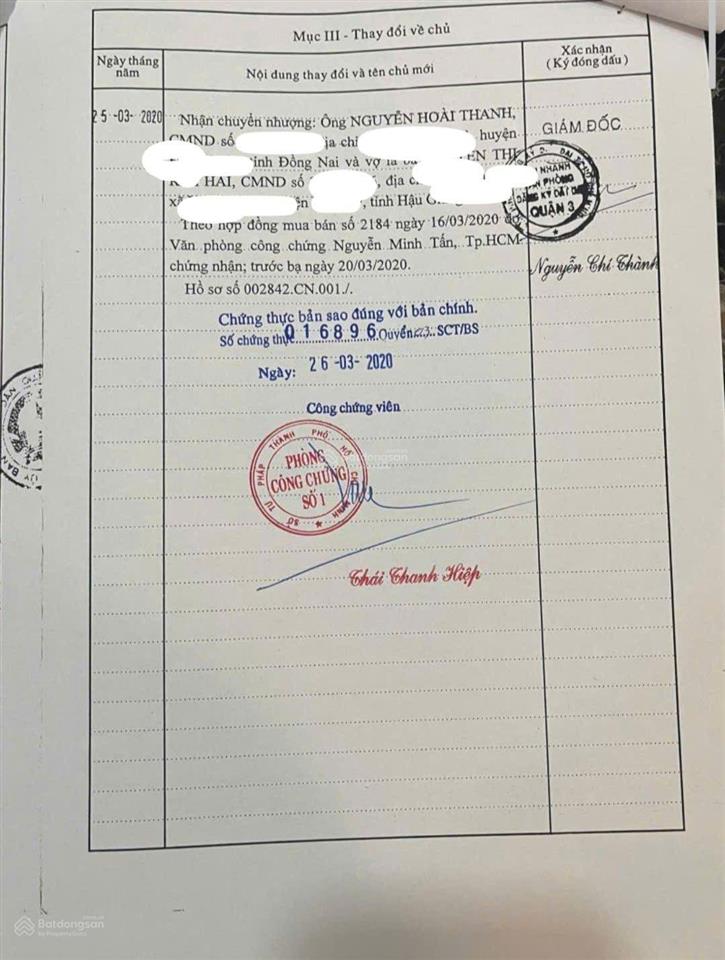 Mục III - Thay đổi về chủ
Ngày tháng năm
Nội dung thay đổi và tên chủ mới
Xác nhận
(Ký đóng dấu)
25-03-2020
Nhận chuyển nhượng: Ông NGUYỄN HOÀI THANH,
CMND số ịa chỉ huyện
tỉnh Đồng Nai và vợ là bà THỊ
HAI, CMND số , địa
xã tỉnh Hậu
Theo hợp đồng mua bán số 2184 ngày 16/03/2020 do
Văn phòng công chứng Nguyễn Minh Tấn, Tp.HCM
chứng nhận; trước bạ ngày 20/03/2020.
Hồ sơ số 002842.CN.001./.
GIÁM ĐỐC
CHI NHÁNH
VĂN PHÒNG
ĐĂNG KÝ ĐẤT ĐAI
QUẬN 3
Nguyễn Chí Thành
Chứng thực bản sao đúng với bản chính.
Số chứng thực 016896 Quyển 23 SCT/BS
Ngày: 26-03-2020
Công chứng viên
SỞ TƯ PHÁP THÀNH PHỐ HỒ CHÍ MINH
PHÒNG
CÔNG CHỨNG
SỐ 1
Thái Thanh Hiệp
Batdongsan
by PropertyGuru